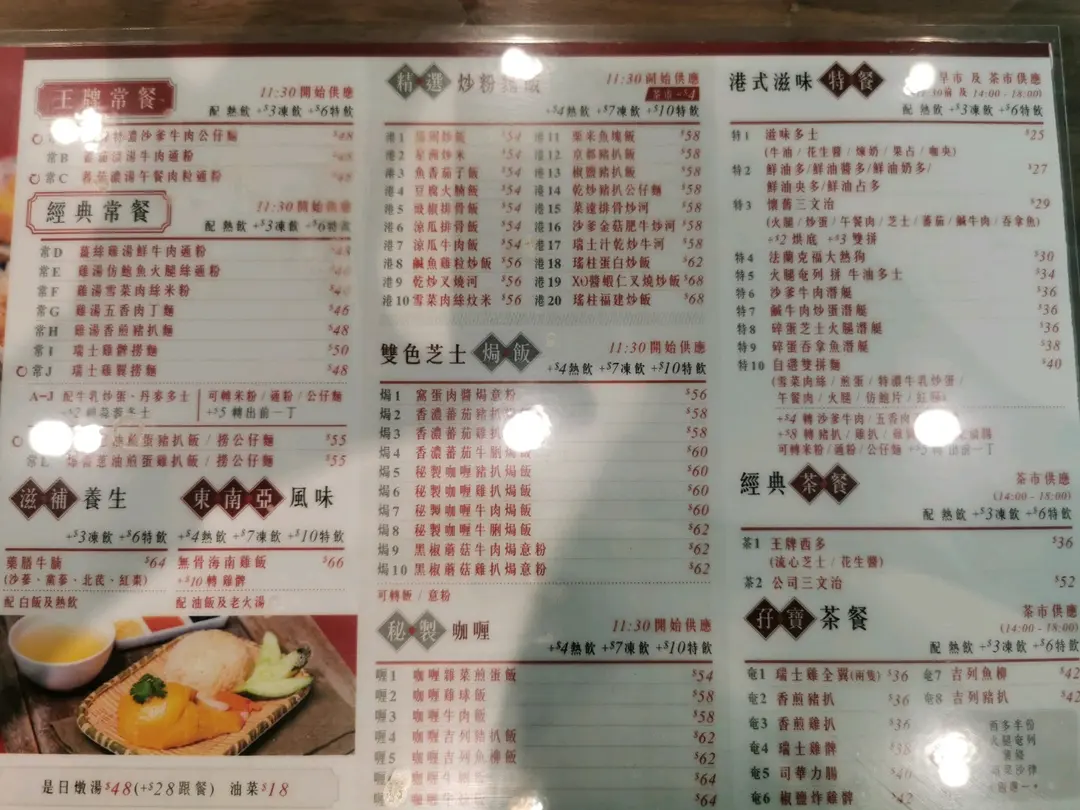 王牌常餐
11:30開始供應
配 熱飲 +$3凍飲 +$6特飲
沙爹牛肉公仔麵 $48
常B 牛肉通粉
常C 蕃茄濃湯午餐肉粒通粉
經典常餐
11:30開始供應
配 熱飲 +$3凍飲 +$6特飲
常D 薑絲雞湯鮮牛肉通粉
常E 雞湯仿鮑魚火腿絲通粉
常F 雞湯雪菜肉絲米粉
常G 雞湯五香肉丁麵 $46
常H 雞湯香煎豬扒麵 $48
常I 瑞士雞髀撈麵 $50
常J 瑞士雞翼撈麵 $48
A-J 配牛乳炒蛋、丹麥多士
可轉米粉 / 通粉 / 公仔麵
+$5 轉出前一丁
油煎蛋豬扒飯 / 撈公仔麵 $55
葱油煎蛋雞扒飯 / 撈公仔麵 $55
滋補養生
+$3凍飲 +$6特飲
藥膳牛腩 $64
(沙參、黨參、北芪、紅棗)
配白飯及熱飲
東南亞風味
+$4熱飲 +$7凍飲 +$10特飲
無骨海南雞飯 $66
+$10 轉雞髀
配 油飯及老火湯
是日燉湯$48(+$28跟餐) 油菜$18
精選 炒粉麵飯
11:30開始供應
茶市-$4
+$4熱飲 +$7凍飲 +$10特飲
港1 炒飯 $54
港2 星洲炒米 $54
港3 魚香茄子飯 $54
港4 豆腐火腩飯 $54
港5 豉椒排骨飯 $54
港6 涼瓜排骨飯 $54
港7 涼瓜牛肉飯 $54
港8 鹹魚雞粒炒飯 $56
港9 乾炒叉燒河 $56
港10 雪菜肉絲炆米 $56
港11 粟米魚塊飯 $58
港12 京都豬扒飯 $58
港13 椒鹽豬扒飯 $58
港14 乾炒豬扒公仔麵 $58
港15 菜遠排骨炒河 $58
港16 沙爹金菇肥牛炒河 $58
港17 瑞士汁乾炒牛河 $58
港18 瑤柱蛋白炒飯 $62
港19 XO醬蝦仁叉燒炒飯 $68
港20 瑤柱福建炒飯 $68
雙色芝士焗飯
11:30開始供應
+$4熱飲 +$7凍飲 +$10特飲
焗1 窩蛋肉醬焗意粉 $56
焗2 香濃蕃茄豬扒焗飯 $58
焗3 香濃蕃茄雞扒 $58
焗4 香濃蕃茄牛脷焗飯 $60
焗5 秘製咖喱豬扒焗飯 $60
焗6 秘製咖喱雞扒焗飯 $60
焗7 秘製咖喱牛肉焗飯 $60
焗8 秘製咖喱牛脷焗飯 $62
焗9 黑椒蘑菇牛肉焗意粉 $62
焗10 黑椒蘑菇雞扒焗意粉 $62
可轉飯 / 意粉
秘製咖喱
11:30開始供應
+$4熱飲 +$7凍飲 +$10特飲
喱1 咖喱雜菜煎蛋飯 $54
喱2 咖喱雞球飯 $58
喱3 咖喱牛肉飯 $58
喱4 咖喱吉列豬扒飯 $62
喱5 咖喱吉列魚柳飯 $62
$64
$64
港式滋味特餐
早市 及 茶市供應
14:00 - 18:00)
配 熱飲 +$3凍飲 +$6特飲
特1 滋味多士 $25
(牛油 / 花生醬 / 煉奶 / 果占 / 咖央)
特2 鮮油多/鮮油醬多/鮮油奶多/ $27
鮮油央多/鮮油占多
特3 懷舊三文治 $29
(火腿 / 炒蛋 / 午餐肉 / 芝士 / 蕃茄 / 鹹牛肉 / 吞拿魚)
+$2 烘底 +$3 雙拼
特4 法蘭克福大熱狗 $30
特5 火腿奄列 拼 牛油多士 $34
特6 沙爹牛肉潛艇 $36
特7 鹹牛肉炒蛋潛艇 $36
特8 碎蛋芝士火腿潛艇 $36
特9 碎蛋吞拿魚潛艇 $38
特10 自選雙拼麵 $40
(雪菜肉絲 / 煎蛋 / 特濃牛乳炒蛋 /
午餐肉 / 火腿 / 仿鮑片 / 紅腸)
+$4 轉沙爹牛肉 / 五香肉
+$8 轉豬扒 / 雞扒 /
可轉米粉 / 通粉 / 公仔麵 轉出前一丁
經典茶餐
茶市供應
(14:00 - 18:00)
配 熱飲 +$3凍飲 +$6特飲
茶1 王牌西多 $36
(流心芝士 / 花生醬)
茶2 公司三文治 $52
孖寶茶餐
茶市供應
(14:00 - 18:00)
配 熱飲 +$3凍飲 +$6特飲
奄1 瑞士雞全翼(兩隻) $36
奄2 香煎豬扒 $36
奄3 香煎雞扒 $36
奄4 瑞士雞髀 $38
奄5 司華力腸 $40
奄6 椒鹽炸雞髀
奄7 吉列魚柳 $42
奄8 吉列豬扒 $42
西多半份
火腿奄列